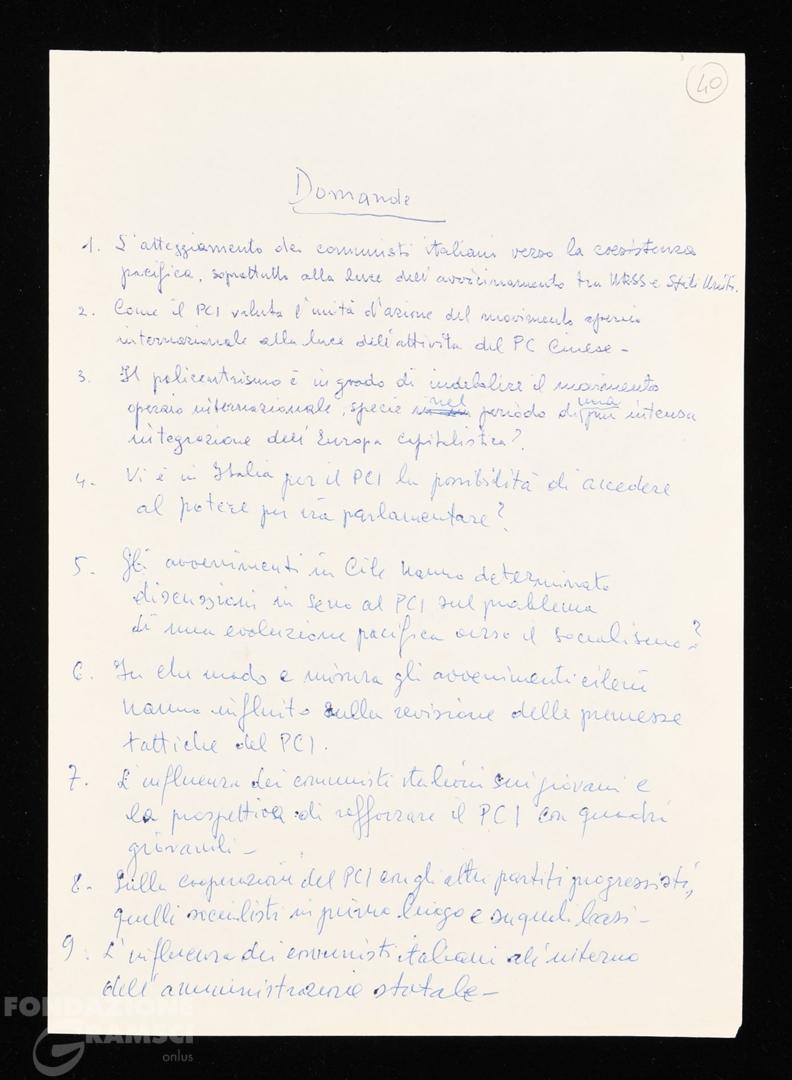 40
Domande
1. L'atteggiamento dei comunisti italiani verso la coesistenza
pacifica, soprattutto alla luce dell'avvicinamento tra URSS e Stati Uniti.
2. Come il PCI valuta l'unità d'azione del movimento operaio
internazionale alla luce dell'attività del PC Cinese -
3. Il policentrismo è in grado di indebolire il movimento
operaio internazionale, specie nel periodo di una più intensa
integrazione dell'Europa capitalistica?
4. Vi è in Italia per il PCI la possibilità di accedere
al potere per via parlamentare?
5. Gli avvenimenti in Cile hanno determinato
discussioni in seno al PCI sul problema
di una evoluzione pacifica verso il socialismo?
6. In che modo e misura gli avvenimenti cileni
hanno influito sulla revisione delle premesse
tattiche del PCI.
7. L'influenza dei comunisti italiani sui giovani e
la prospettiva di rafforzare il PCI con quadri
giovanili -
8. Sulla cooperazione del PCI con gli altri partiti progressisti,
quelli socialisti in primo luogo e su quali basi -
9. L'influenza dei comunisti italiani all'interno
dell'amministrazione statale -
FONDAZIONE
GRAMSCI
onlus